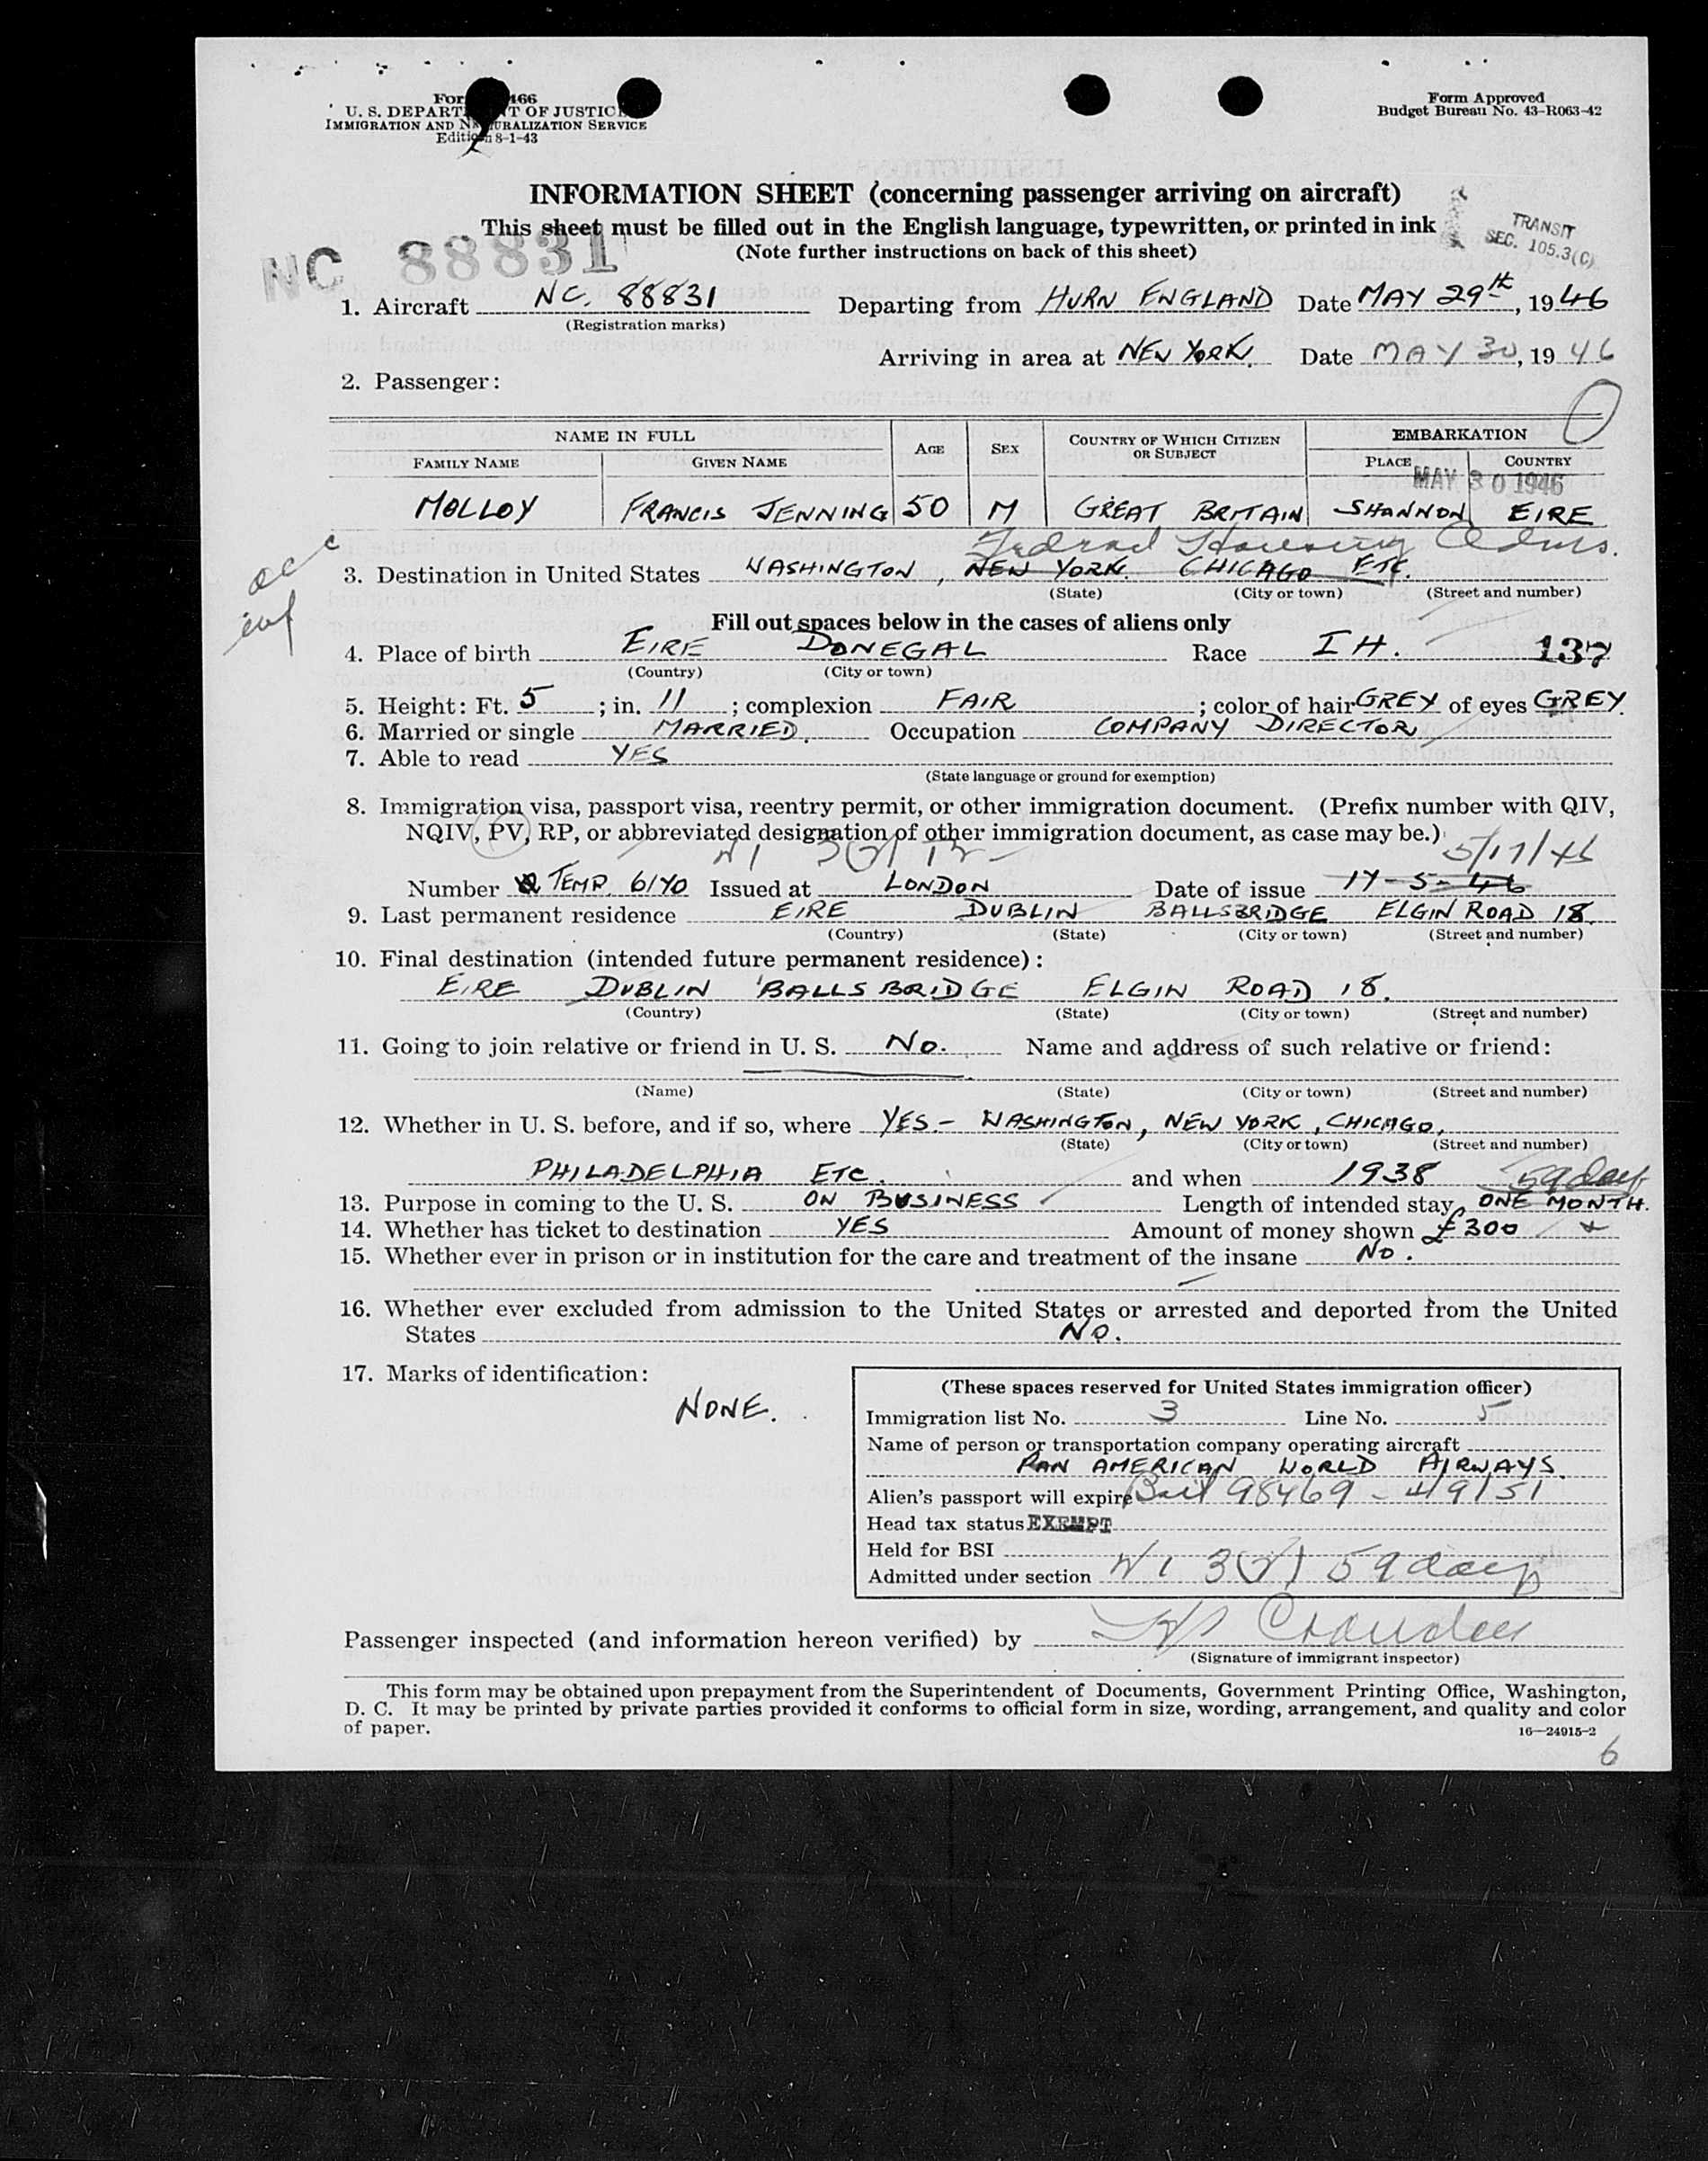 Form Approved
Budget Bureau No. 43-R063-42
U. S. DEPARTMENT OF JUSTICE
IMMIGRATION AND NATURALIZATION SERVICE
Edition 8-1-43
INFORMATION SHEET (concerning passenger arriving on aircraft)
This sheet must be filled out in the English language, typewritten, or printed in ink
(Note further instructions on back of this sheet)
TRANSIT
SEC. 105.3(C)
NC 88831
1. Aircraft NC. 88831 Departing from HURN ENGLAND Date MAY 29th, 1946
(Registration marks)
Arriving in area at NEW YORK. Date MAY 30, 1946
2. Passenger:
NAME IN FULL AGE SEX COUNTRY OF WHICH CITIZEN OR SUBJECT EMBARKATION
FAMILY NAME GIVEN NAME PLACE COUNTRY
MAY 30 1946
MOLLOY FRANCIS JENNING 50 M GREAT BRITAIN SHANNON EIRE
Federal Housing Adms.
3. Destination in United States WASHINGTON, NEW YORK. CHICAGO ETC.
(State) (City or town) (Street and number)
Fill out spaces below in the cases of aliens only
4. Place of birth EIRE DONEGAL Race IH. 137
(Country) (City or town)
5. Height: Ft. 5; in. 11; complexion FAIR; color of hair GREY of eyes GREY.
6. Married or single MARRIED. Occupation COMPANY DIRECTOR
7. Able to read YES
(State language or ground for exemption)
8. Immigration visa, passport visa, reentry permit, or other immigration document. (Prefix number with QIV,
NQIV, PV, RP, or abbreviated designation of other immigration document, as case may be.)
5/17/46
Number TEMP. 6140 Issued at LONDON Date of issue 17-5-46
9. Last permanent residence EIRE DUBLIN BALLSBRIDGE ELGIN ROAD 18.
(Country) (State) (City or town) (Street and number)
10. Final destination (intended future permanent residence):
EIRE DUBLIN BALLSBRIDGE ELGIN ROAD 18.
(Country) (State) (City or town) (Street and number)
11. Going to join relative or friend in U. S. No. Name and address of such relative or friend:
(Name) (State) (City or town) (Street and number)
12. Whether in U. S. before, and if so, where YES.- WASHINGTON, NEW YORK, CHICAGO,
(State) (City or town) (Street and number)
PHILADELPHIA ETC. and when 1938 59 days
13. Purpose in coming to the U. S. ON BUSINESS Length of intended stay ONE MONTH.
14. Whether has ticket to destination YES Amount of money shown £300
15. Whether ever in prison or in institution for the care and treatment of the insane No.
16. Whether ever excluded from admission to the United States or arrested and deported from the United
States No.
17. Marks of identification:
NONE.
(These spaces reserved for United States immigration officer)
Immigration list No. 3 Line No. 5
Name of person or transportation company operating aircraft
PAN AMERICAN WORLD AIRWAYS.
Alien's passport will expire Brit 98469 - 4/9/51
Head tax status EXEMPT
Held for BSI
Admitted under section 3(2) 59 days
Passenger inspected (and information hereon verified) by
(Signature of immigrant inspector)
This form may be obtained upon prepayment from the Superintendent of Documents, Government Printing Office, Washington,
D. C. It may be printed by private parties provided it conforms to official form in size, wording, arrangement, and quality and color
of paper.
16—24915-2
6